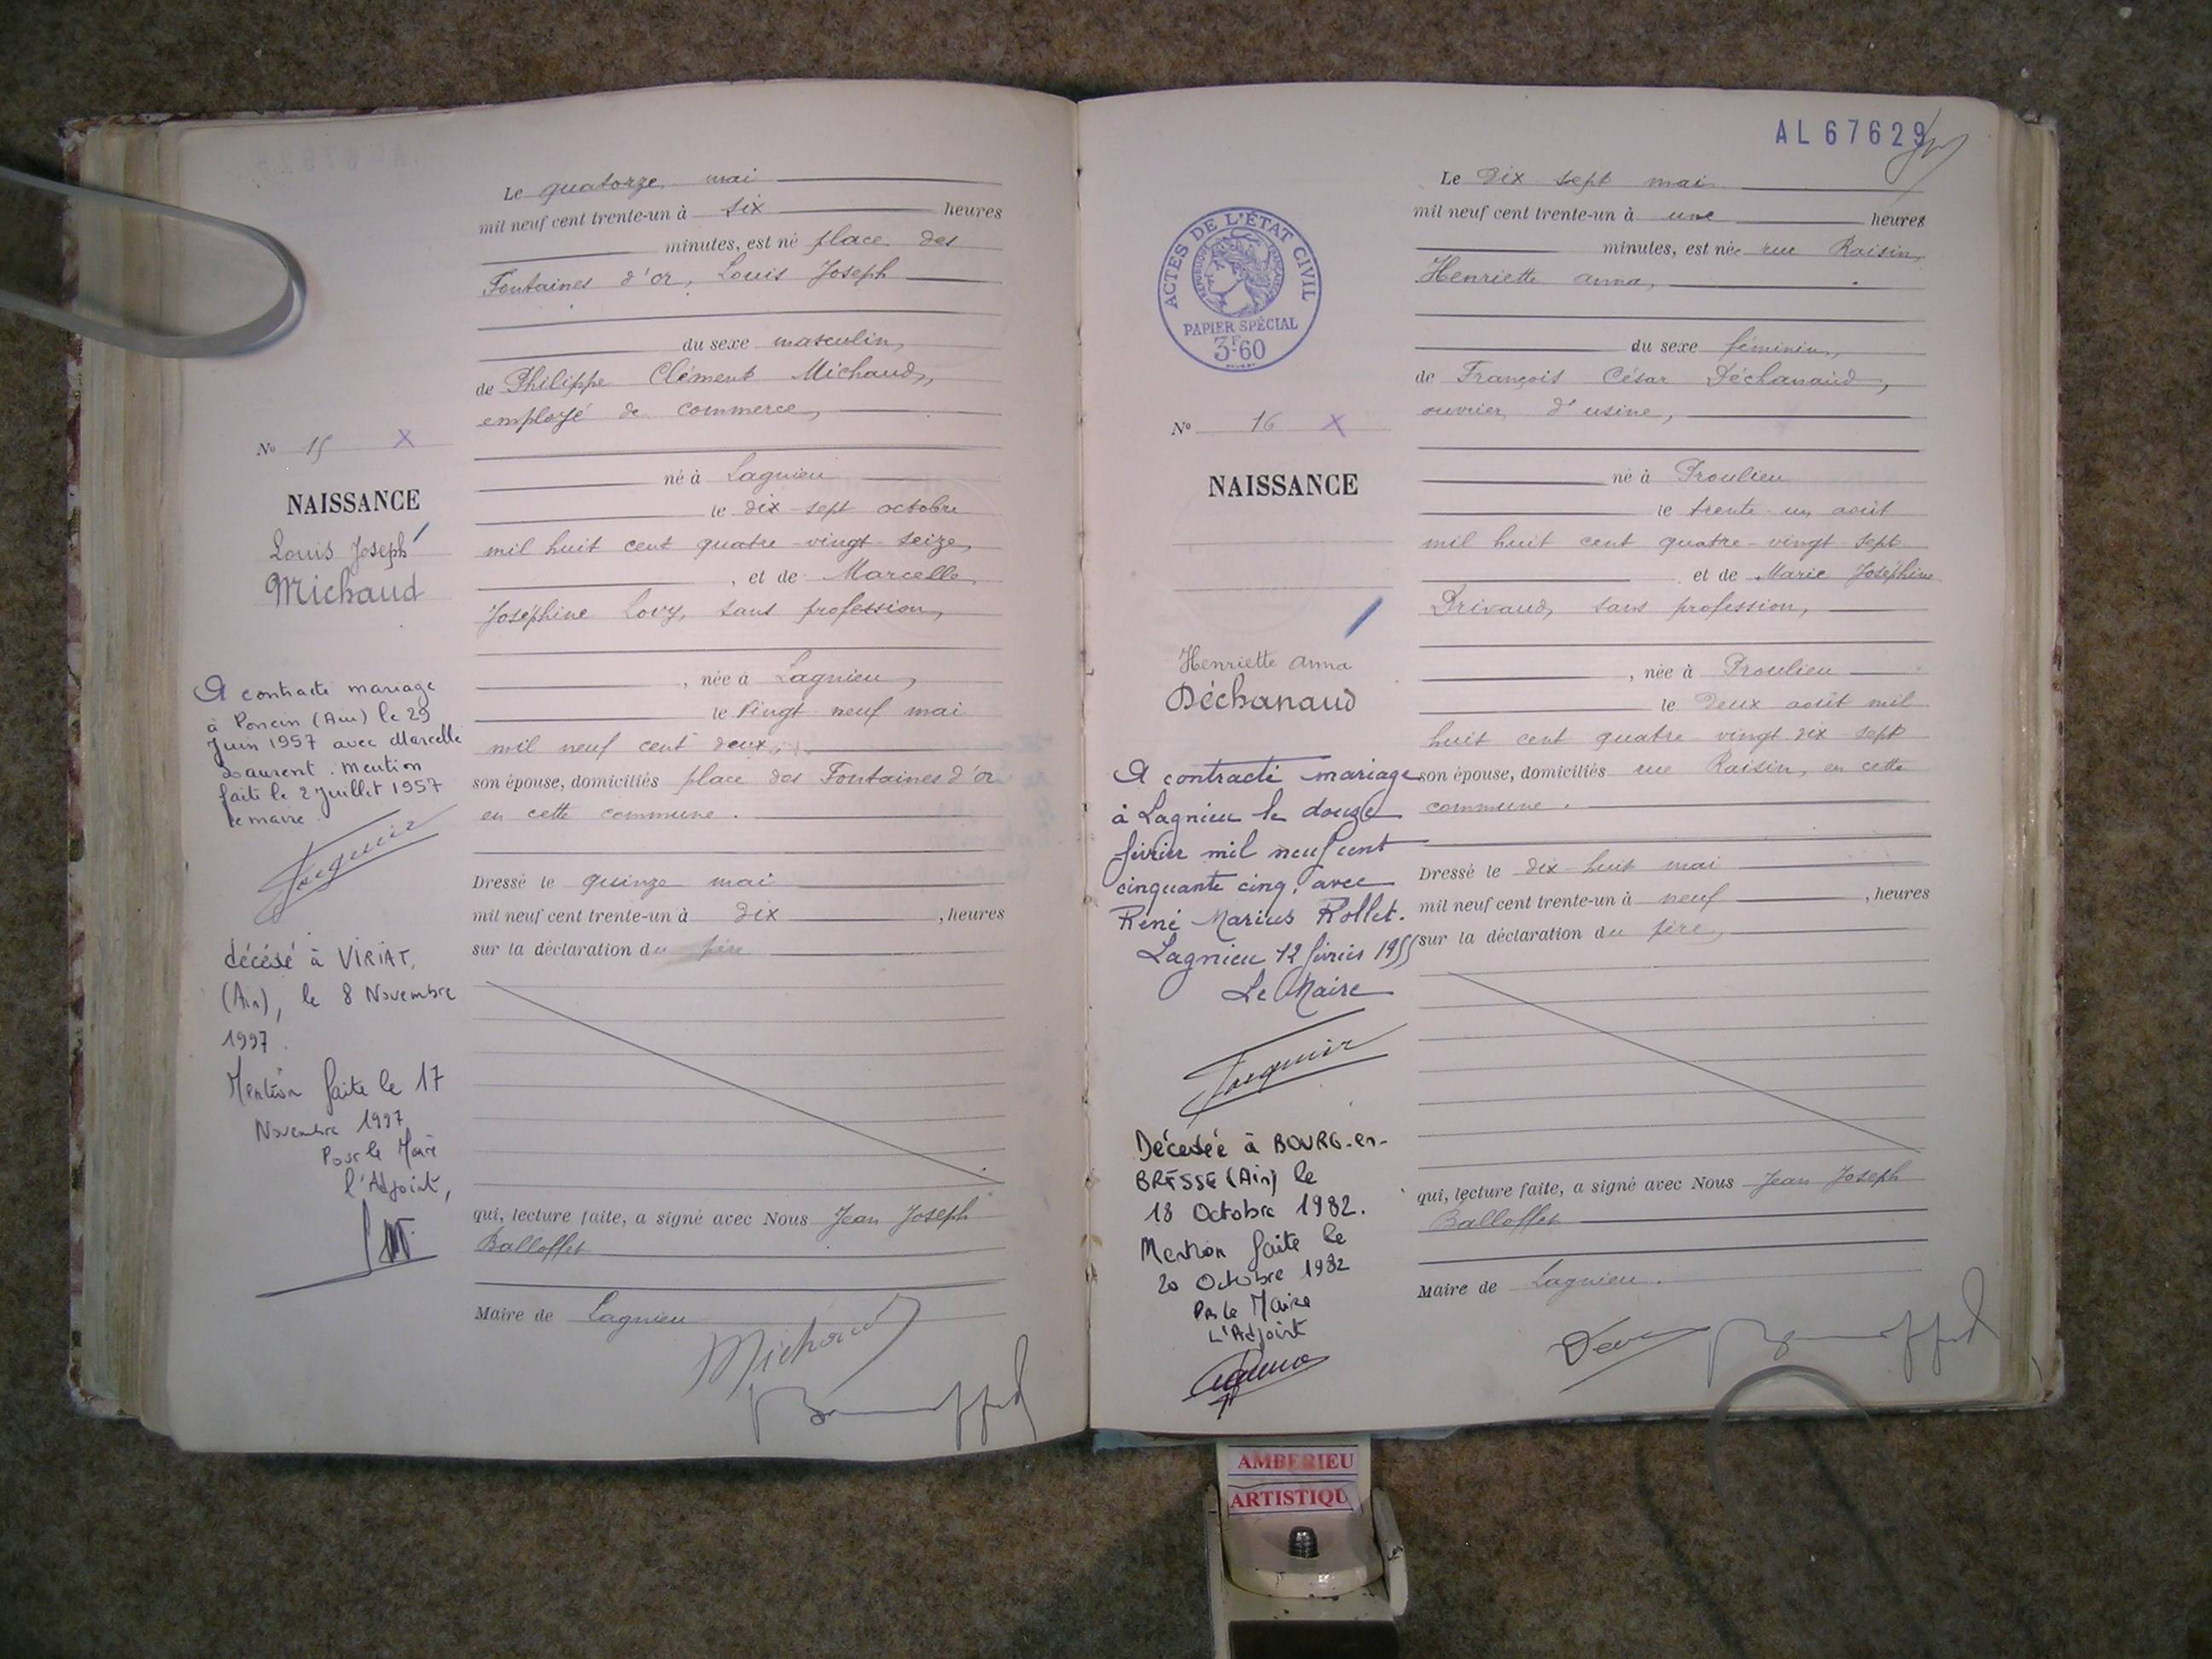 Le quatorze mai
mil neuf cent trente-un à six heures
minutes, est né place des
Fontaines d'or, Louis Joseph
du sexe masculin,
de Philippe Clément Michaud,
employé de commerce,
né à Lagnieu
le dix-sept octobre
mil huit cent quatre-vingt-seize,
, et de Marcelle
Joséphine Lovy, sans profession,
, née à Lagnieu,
le vingt neuf mai
mil neuf cent deux,
son épouse, domiciliés place des Fontaines d'or
en cette commune.
Dressé le quinze mai
mil neuf cent trente-un à dix , heures
sur la déclaration du père
qui, lecture faite, a signé avec Nous Jean Joseph
Balloffet
Maire de Lagnieu
Michaud
No 15 X
NAISSANCE
Louis Joseph
Michaud
A contracté mariage
à Poncin (Ain) le 29
Juin 1957 avec Marcelle
Laurent. Mention
faite le 2 Juillet 1957
le maire
décédé à VIRIAT,
(Ain), le 8 Novembre
1997.
Mention faite le 17
Novembre 1997
Pour le Maire
l'Adjoint,
AL67629
Le dix sept mai
mil neuf cent trente-un à une heures
minutes, est née rue Raisin,
Henriette anna,
du sexe féminin,
de François César Déchanaud,
ouvrier d'usine,
né à Proulieu
le trente-un août
mil huit cent quatre-vingt sept
et de Marie Joséphine
Privaud, sans profession,
, née à Proulieu
le deux août mil
huit cent quatre vingt dix sept
son épouse, domiciliés rue Raisin, en cette
commune.
Dressé le dix-huit mai
mil neuf cent trente-un à neuf , heures
sur la déclaration du père,
qui, lecture faite, a signé avec Nous Jean Joseph
Balloffet
Maire de Lagnieu.
ACTES DE L'ÉTAT CIVIL
REPUBLIQUE FRANÇAISE
PAPIER SPÉCIAL
3F60
No 16 X
NAISSANCE
Henriette anna
Déchanaud
A contracté mariage
à Lagnieu le douze
février mil neuf cent
cinquante cinq, avec
René Marius Rollet.
Lagnieu 12 février 1955
Le Maire
Décédée à BOURG-en-
BRESSE (Ain) le
18 Octobre 1982.
Mention faite le
20 Octobre 1982
P. le Maire
L'Adjoint
AMBERIEU
ARTISTIQU